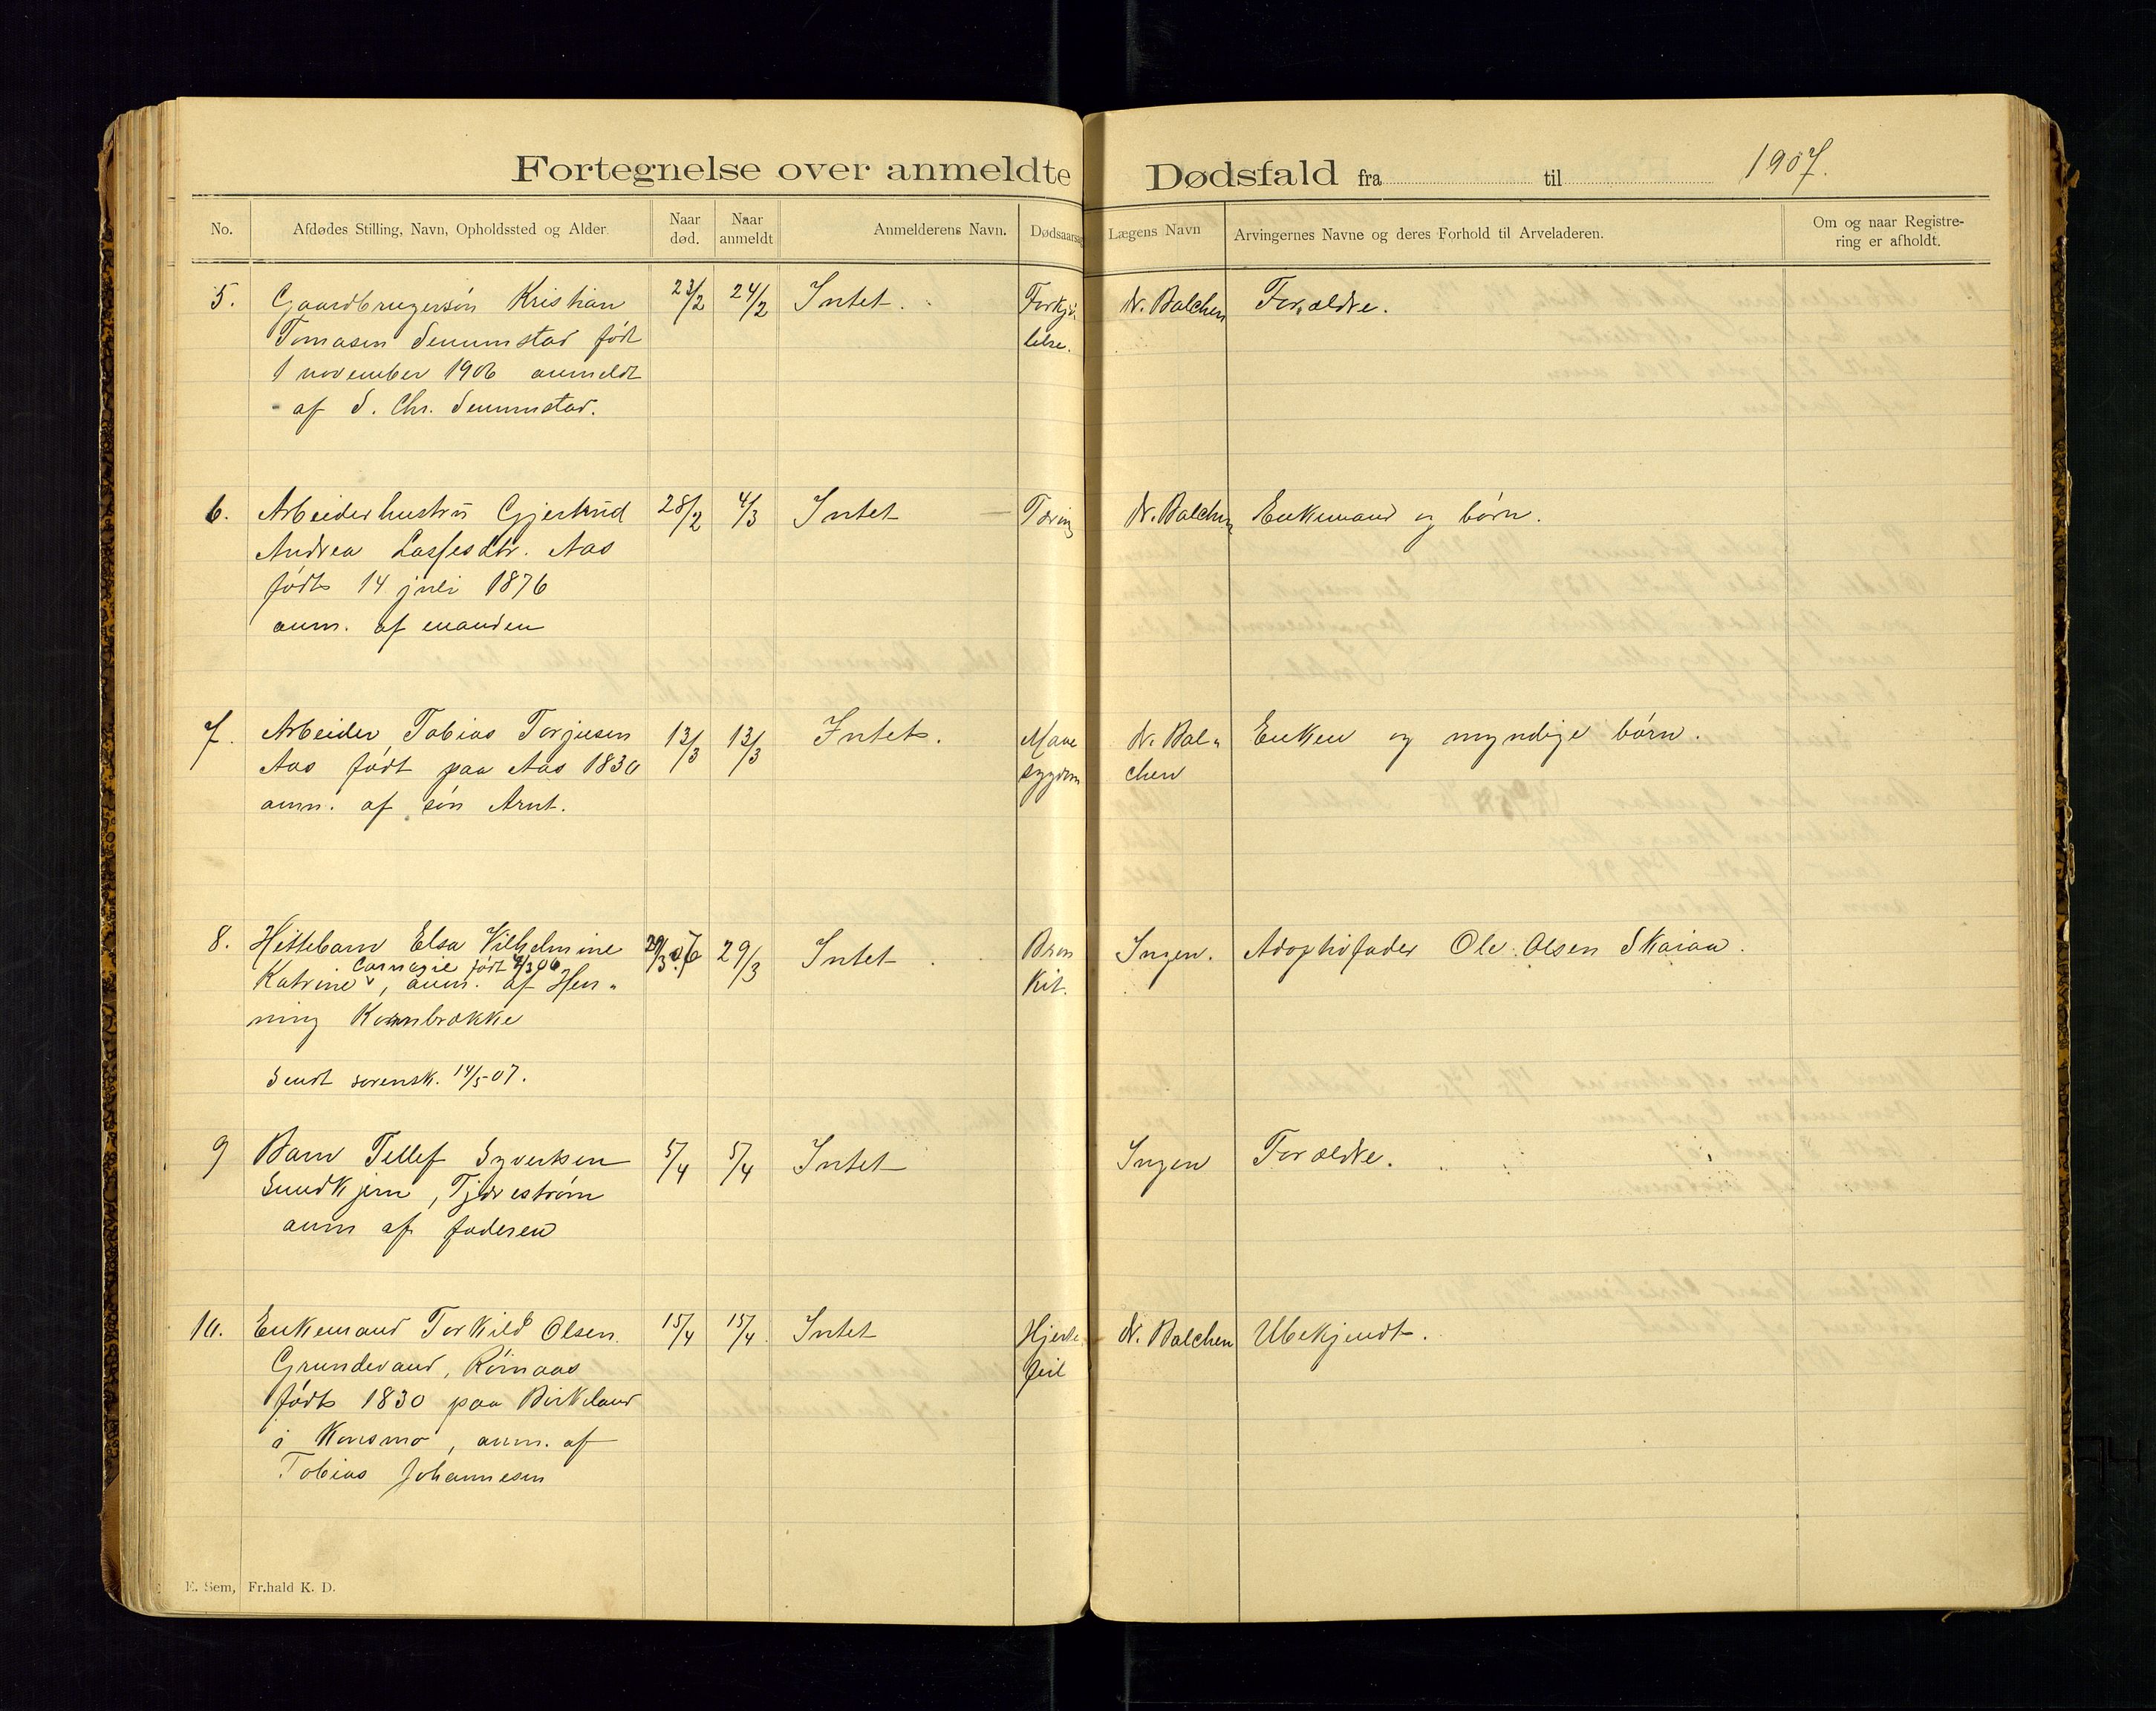 Fortegnelse over anmeldte Dødsfald fra til 1907.
No. Afdødes Stilling, Navn, Opholdssted og Alder. Naar død. Naar anmeldt Anmelderens Navn. Dødsaarsag Lægens Navn Arvingernes Navne og deres Forhold til Arveladeren. Om og naar Registrering er afholdt.
5. Gaardbrugersøn Kristian 23/2 24/2 Intet. Forkjø- dr. Balchen Forældre.
Tomasen Senumstad født lelse.
1 november 1906 anmeldt
af S. Chr. Senumstad.
6. Arbeiderhustru Gjertrud 28/2 4/3 Intet Tæring dr. Balchen Enkemand og børn.
Andrea Lassesdtr. Aas
født 14 juli 1876
anm. af manden
7. Arbeider Tobias Torjusen 13/3 13/3 Intet. Mave dr. Bal-
Aas født paa Aas 1830 sygdom chen Enken og myndige børn.
anm. af søn Arnt.
8. Hittebarn Elsa Vilhelmine 29/3 07 29/3 Intet Bron Ingen. Adoptivfader Ole Olsen Skaiaa.
Carnegie født 4/3 06
Katrine, anm. af Hen- kit.
ning Kornbrække
Sendt sorensk. 14/5 07.
9 Barn Tellef Syvertsen 5/4 5/4 Intet Ingen Forældre.
Sundkjern, Tjørestrøm
anm af faderen
10. Enkemand Torkild Olsen 15/4 15/4 Intet Hjerte- dr. Balchen Ubekjendt.
Grundevand, Rømaas feil
født 1830 paa Birkeland
i Konsmo, anm. af
Tobias Johannesen
E. Sem, Fr.hald K. D.